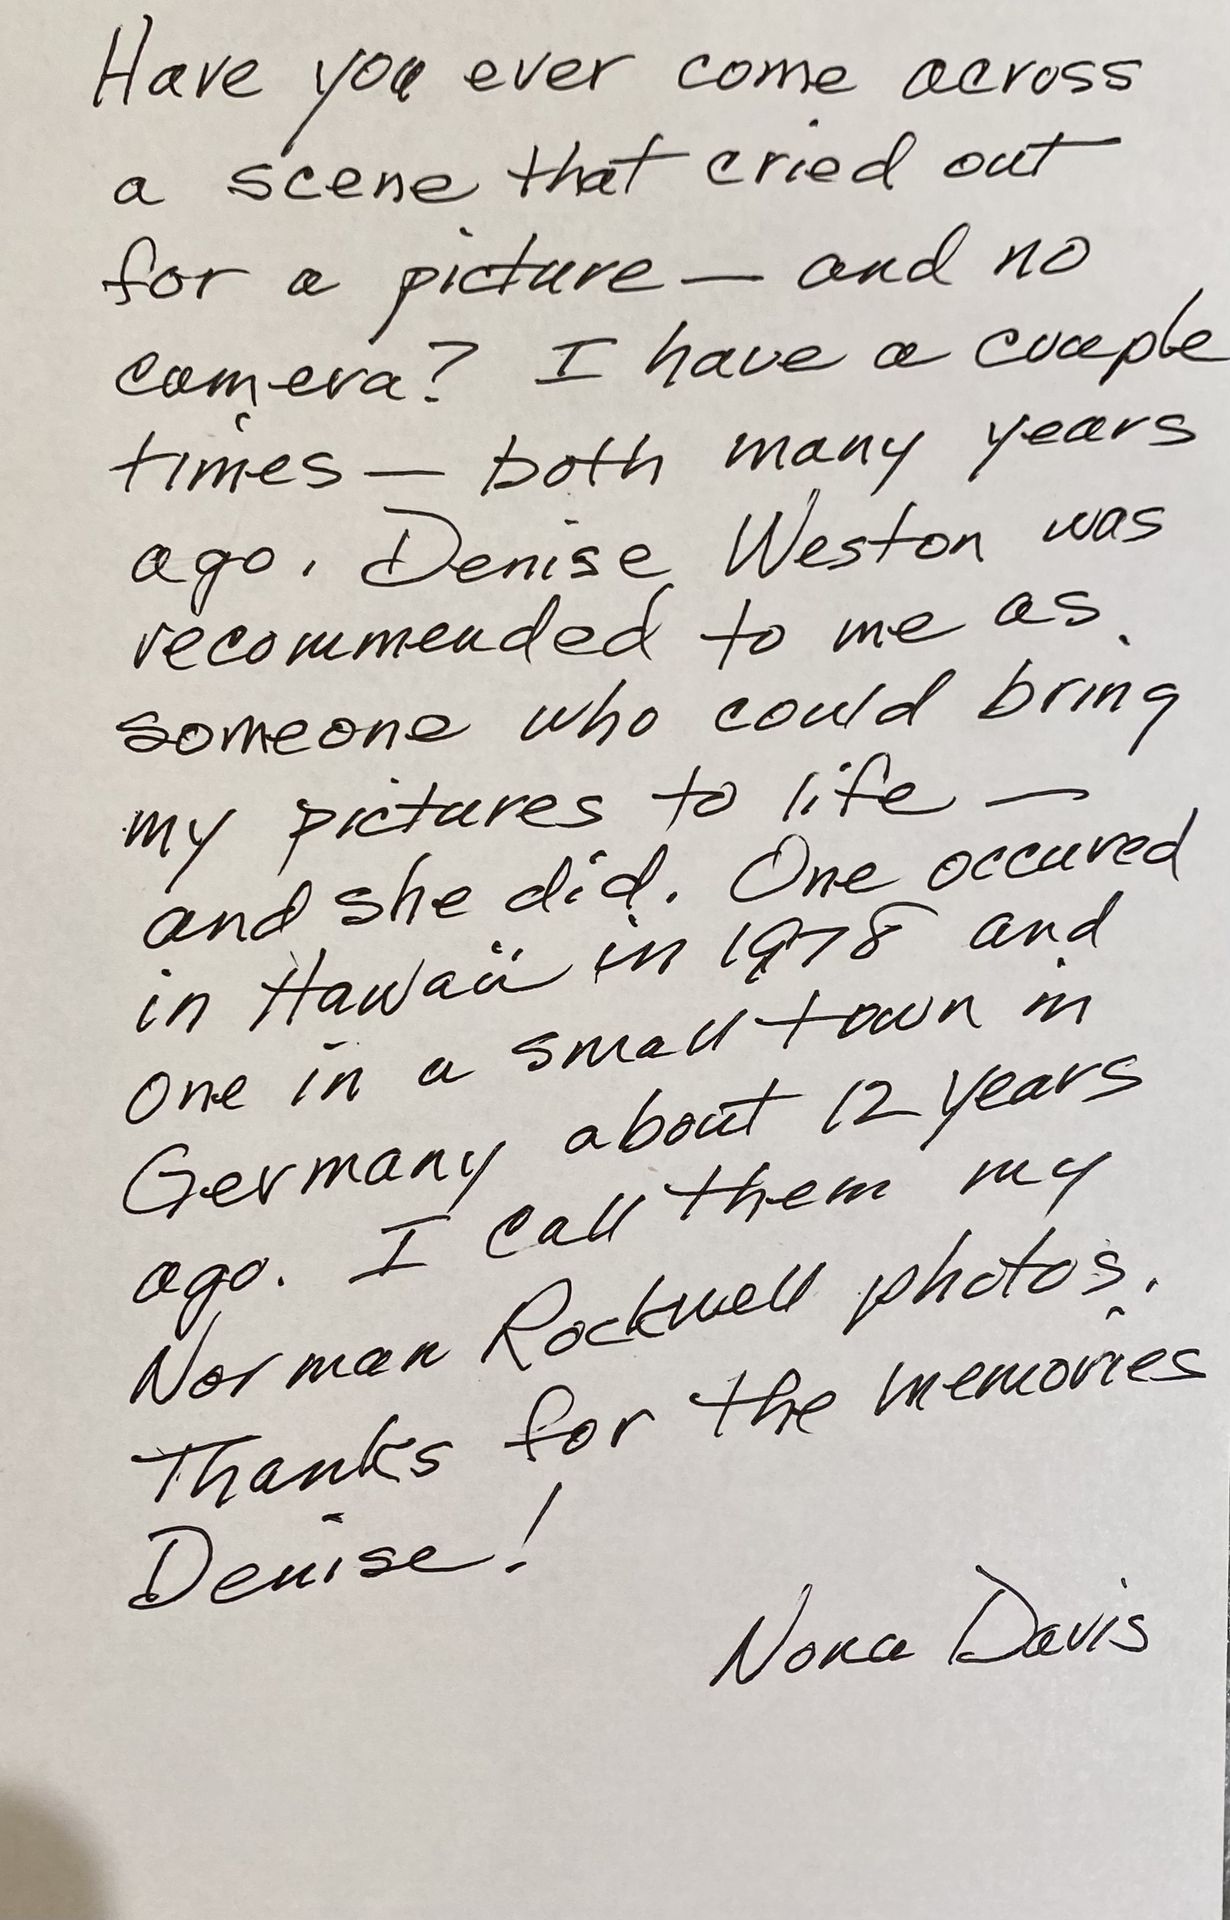 Have you ever come across
a scene that cried out
for a picture — and no
camera? I have a couple
times — both many years
ago. Denise Weston was
recommended to me as
someone who could bring
my pictures to life —
and she did. One occured
in Hawaii in 1978 and
one in a small town in
Germany about 12 years
ago. I call them my
Norman Rockwell photos.
Thanks for the memories
Denise!
Nona Davis